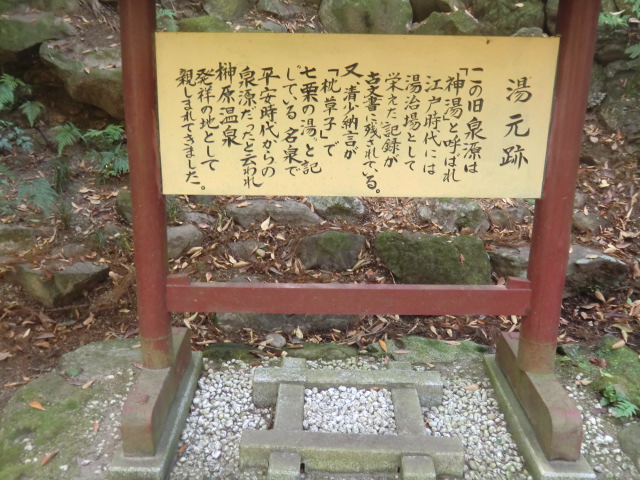 湯元跡
この旧泉源は
「神湯」と呼ばれ
江戸時代には
湯治場として
栄えた記録が
古文書に残されている。
又清少納言が
「枕草子」で
七栗の湯、と記
している名泉で
平安時代からの
泉源だったと云われ
榊原温泉
発祥の地として
親しまれてきました。